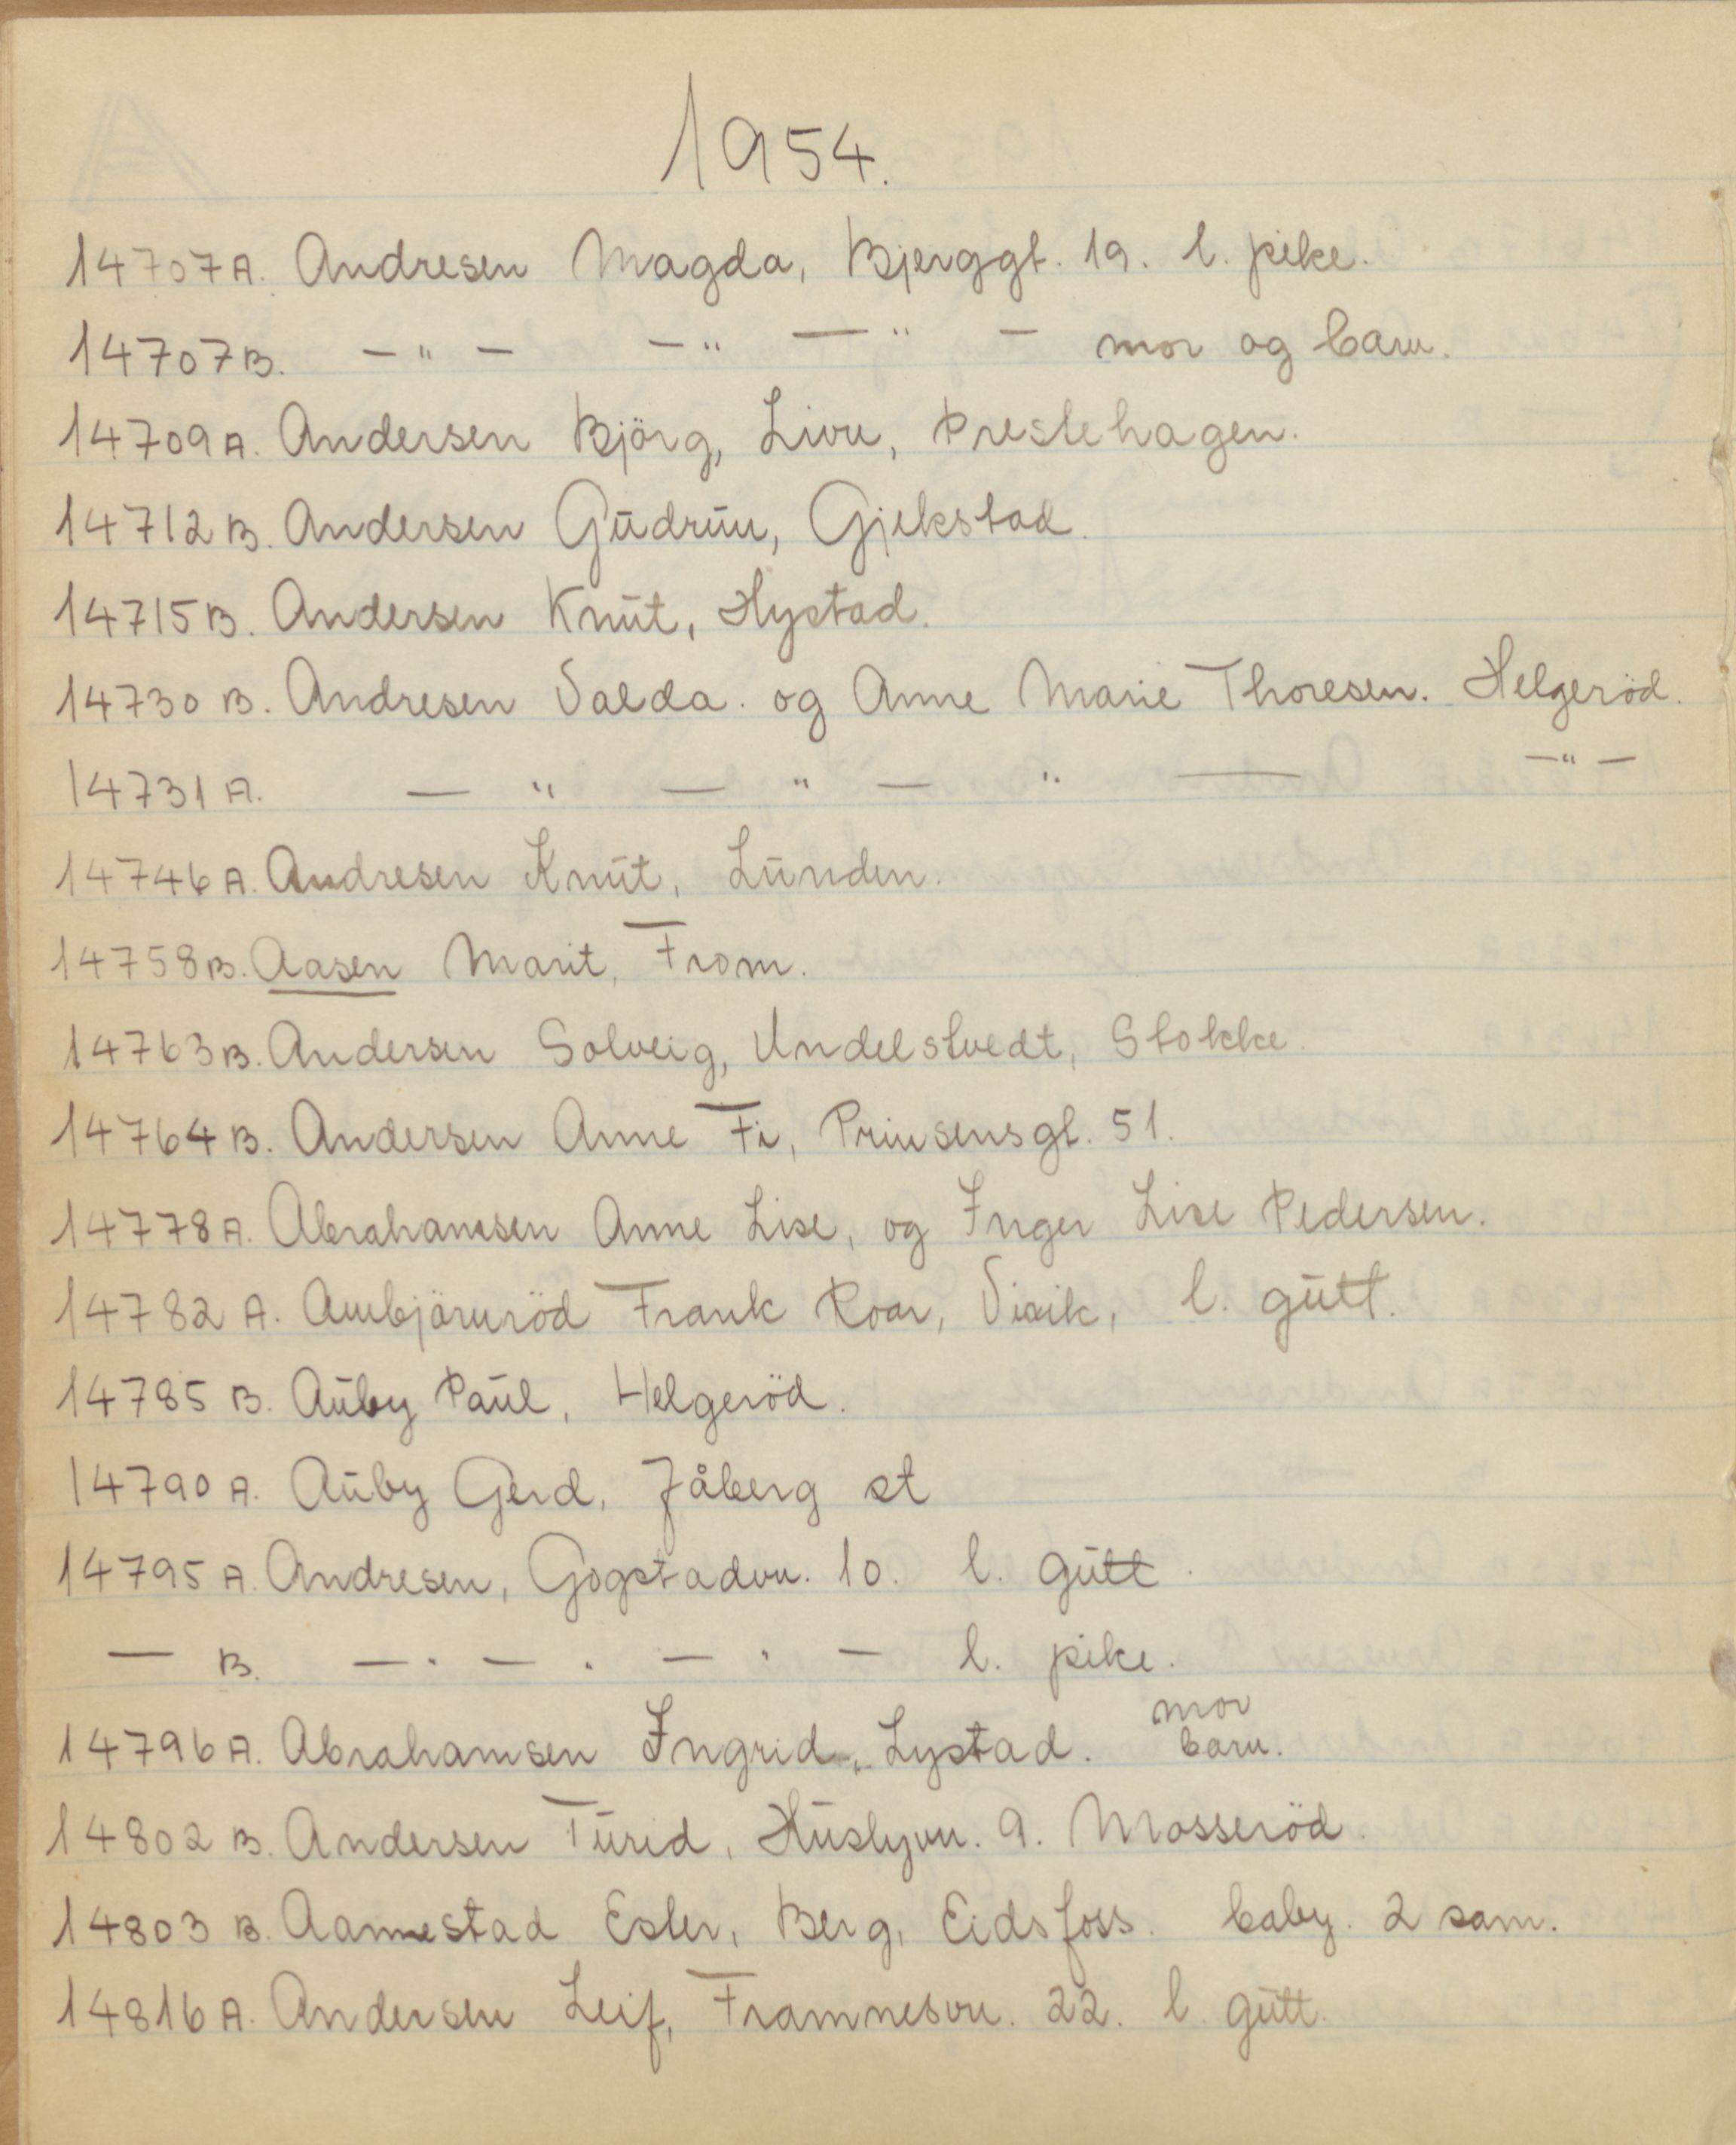 1954.
14707A. Andresen Magda, Bjerggt. 19. l. pike.
14707B. — " — — " — " — mor og barn.
14709A. Andersen Björg, Livn, Prestehagen.
14712B. Andersen Gudrun, Gjekstad.
14715B. Andersen Knut, Hystad.
14730B. Andresen Valda. og Anne Marie Thoresen. Helgeröd.
14731A. — " — " — " — — " —
14746A. Andresen Knut, Lunden.
14758B. Aasen Marit, From.
14763B. Andersen Solveig, Undelstvedt, Stokke.
14764B. Andersen Anne Fi, Prinsensgt. 51.
14778A. Abrahamsen Anne Lise, og Inger Lise Pedersen.
14782A. Ambjörnröd Frank Roar, Vivik, l. gutt.
14785B. Auby Paul, Helgeröd.
14790A. Auby Gerd, Jåberg st
14795A. Andresen, Gogstadvn. 10. l. gutt.
— B. — . — . — . — l. pike.
14796A. Abrahamsen Ingrid, Lystad. mor barn.
14802B. Andersen Turid, Huslyvn. 9. Mosseröd.
14803B. Aamestad Ester, Berg, Eidsfoss. baby. 2 sam.
14816A. Andersen Leif, Framnesvn. 22. l. gutt.